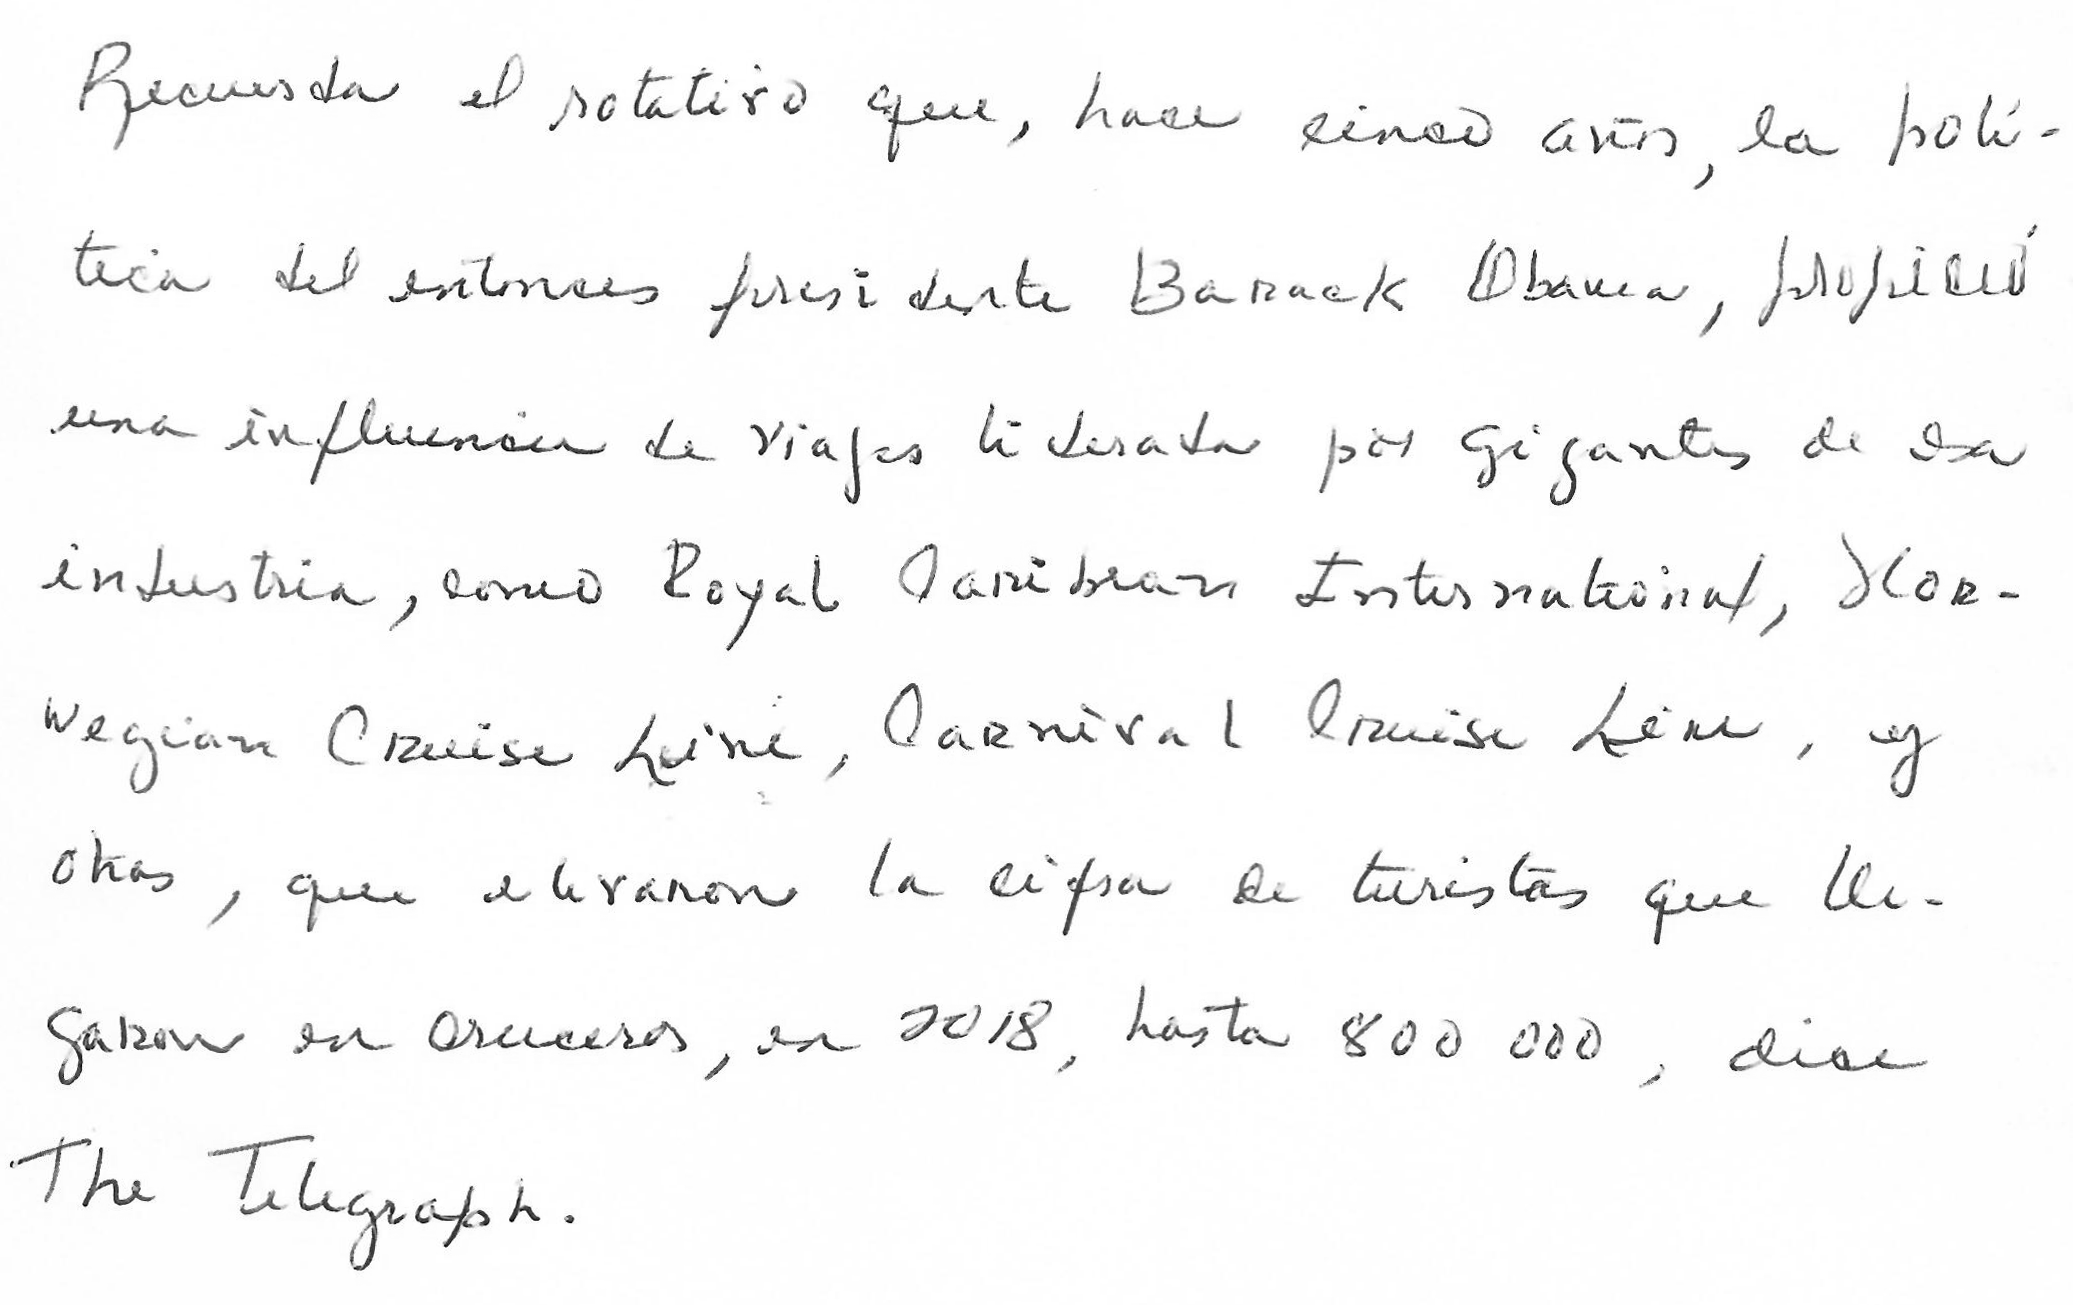 Recuerda el rotativo que, hace cinco años, la polí-
tica del entonces presidente Barack Obama, propició
una influencia de viajes liderada por gigantes de esa
industria, como Royal Caribbean International, Nor-
wegian Cruise Line, Carnival Cruise Line, y
otras, que elevaron la cifra de turistas que lle-
garon en cruceros, en 2018, hasta 800 000, dice
The Telegraph.